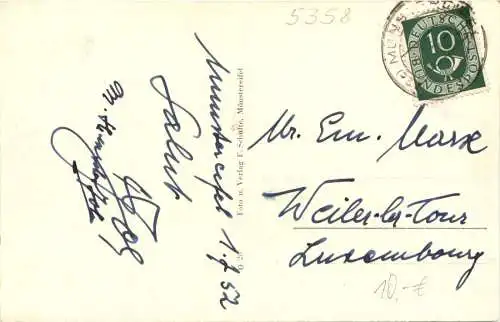 5358
MÜNS
DEUTSCHE
BUNDESPOST
10
Münstereifel 1.7.52
Salut
Foto u. Verlag F. Schulte, Münstereifel
Mr. Em. Marx
Weiler-la-Tour
Luxembourg
10,-€